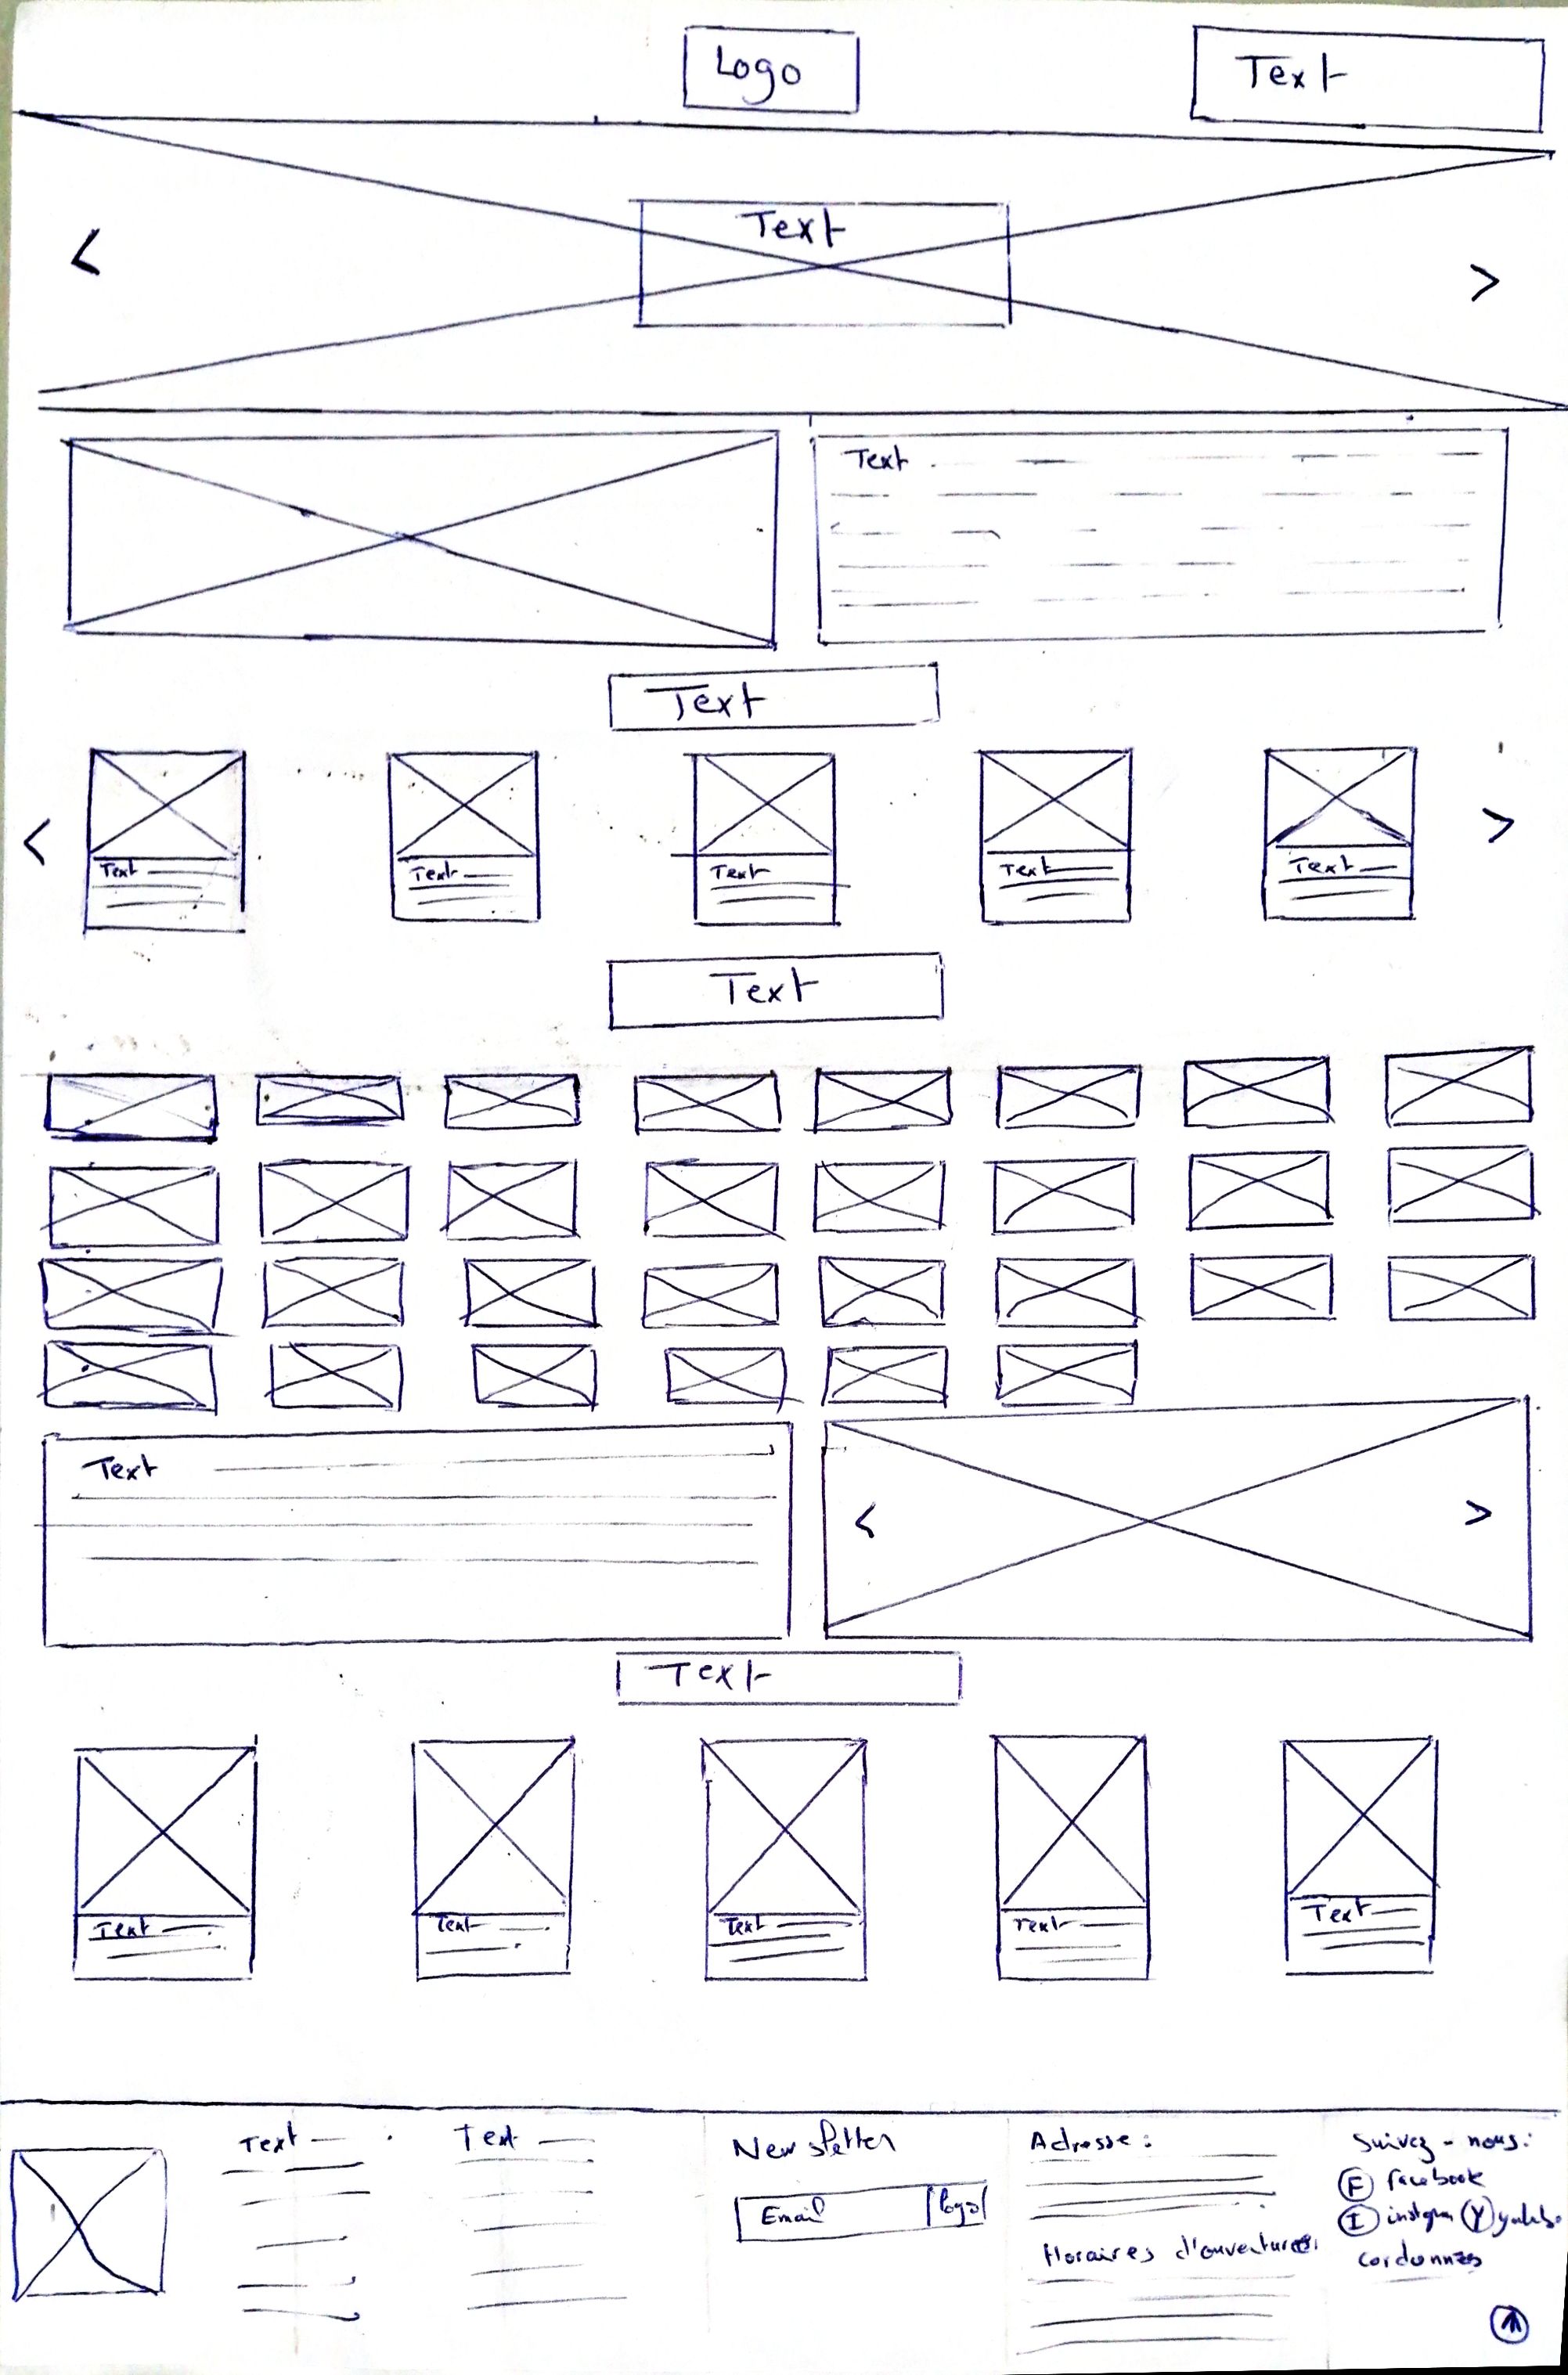 Logo
Text
Text
<
>
Text
Text
<
Text
Text
Text
Text
Text
>
Text
Text
<
>
Text
Text
Text
Text
Text
Text
Text
Text
Newsletter
Email
logo
Adresse :
Horaires d'ouverture
Suivez-nous:
F facebook
I instgrm Y
Cordonnes